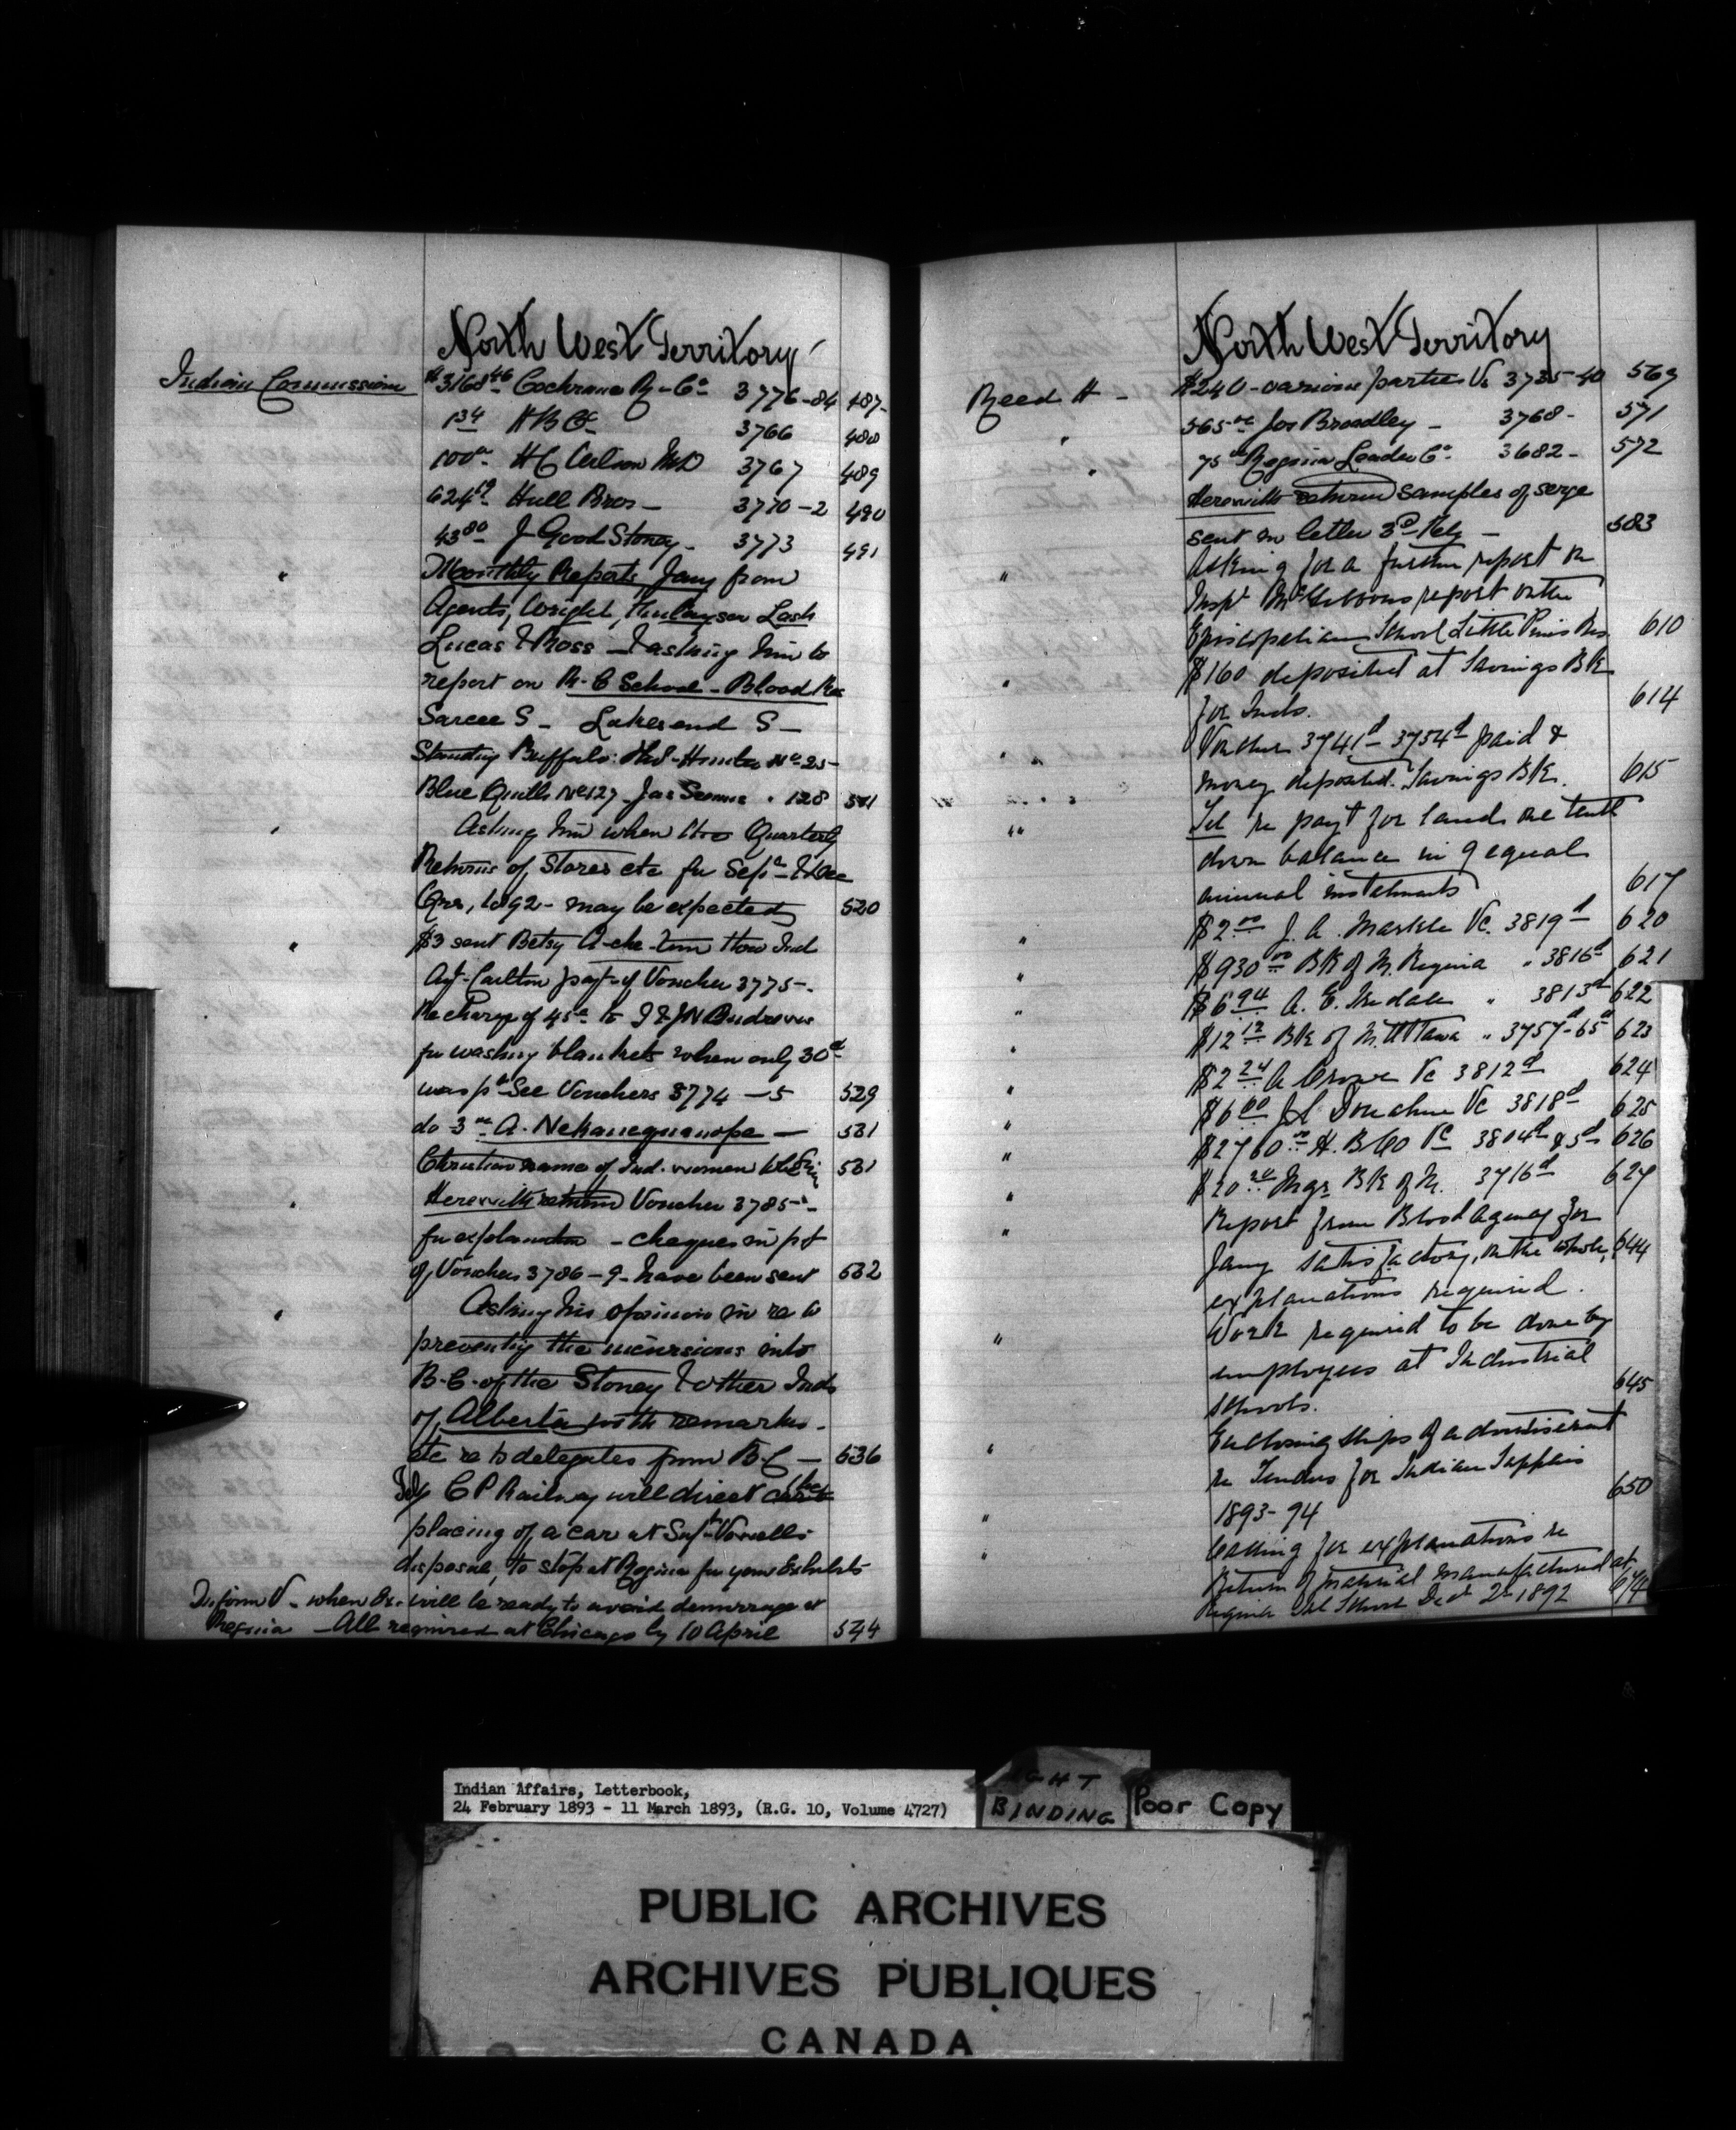 North West Territory
Indian Commissione
$3168.46 Cochrane R - Co 3776-84 487
1.34 H B Co 3766 488
100 H C MD 3767 489
624.19 Hull Bros - 3770-2 490
43.80 J Good Stoney - 3773 491
" Monthly Reports, Jany from
Agents, Wright, Finlayson Lash
Lucas & Ross - & asking him to
report on R.C School - Blood Res
Sarcee S - Lakesend S -
Standing Buffalo: No 25 -
Blue Quills No 127 - Jas " 128 501
" Asking him when the Quarterly
Returns of Stores etc for Sepr & Dec
Qrs, 1892 - may be expected 520
" $3 sent Betsy How Ind
Agt - Carlton payt of Voucher 3775 -
Re Charge of 45c to I & JN Andrews
for washing blankets when only 30
was pd See Vouchers 3774 - 5 529
do 3 A. Nekanequanope - 531
Christian name of Ind. women 531
" Herewith return Voucher 3785 -
for explanation - cheques in pt
of Vouchers 3786 - 9 - have been sent 532
" Asking his opinion in re to
preventing the incursions into
B.C. of the Stoney & other Inds
of Alberta with remarks -
etc re to delegates from B.C - 536
Tely C P Railway will direct the
placing of a car at Supt Vowell's
disposal, to stop at Regina for your Exhibits
Inform V - when Ex. will be ready to avoid demurrage at
Regina - All required at Chicago by 10 April 544
North West Territory
Reed H - $240 - various parties Vc 3735-40 569
" 565 Jos Broadley - 3768 - 571
" 75 Regina Leader Co - 3682 - 572
Herewith return samples of serge
sent in letter 3d Feby - 583
" Asking for a further report on
Insp. McGibbons report on the
Episcopalian School Little Pines Res. 610
" $160 deposited at Savings Bk
for Inds. 614
" Voucher 3741d - 3754d paid &
money deposited Savings Bk. 615
" Tel re payt for lands one tenth
down balance in 9 equal
annual instalments 617
" $2.00 J. A. Markle Vc. 3819d 620
" $930.00 Bk of M. Regina " 3816d 621
" $6.94 A. E. " 3813d 622
" $12.12 Bk of M. Ottawa " 3757d-65d 623
" $2.24 A Crowe Vc 3812d 624
" $6.00 J L Donahue Vc 3818d 625
" $2760.00 H. B Co Vc 3804d & 5d 626
" $20.20 Mgr Bk of M. 3716d 627
" Report from Blood Agency for
Jany satisfactory, on the whole, 644
explanations required.
" Work required to be done by
employees at Industrial
schools. 645
" Enclosing slips of advertisement
re Tenders for Indian Supplies
" 1893-94 650
" Calling for explanations re
Return of material manufactured at
Regina Ind School Dec 1892 674
Indian Affairs, Letterbook,
24 February 1893 - 11 March 1893, (R.G. 10, Volume 4727)
BINDING
Poor Copy
PUBLIC ARCHIVES
ARCHIVES PUBLIQUES
CANADA